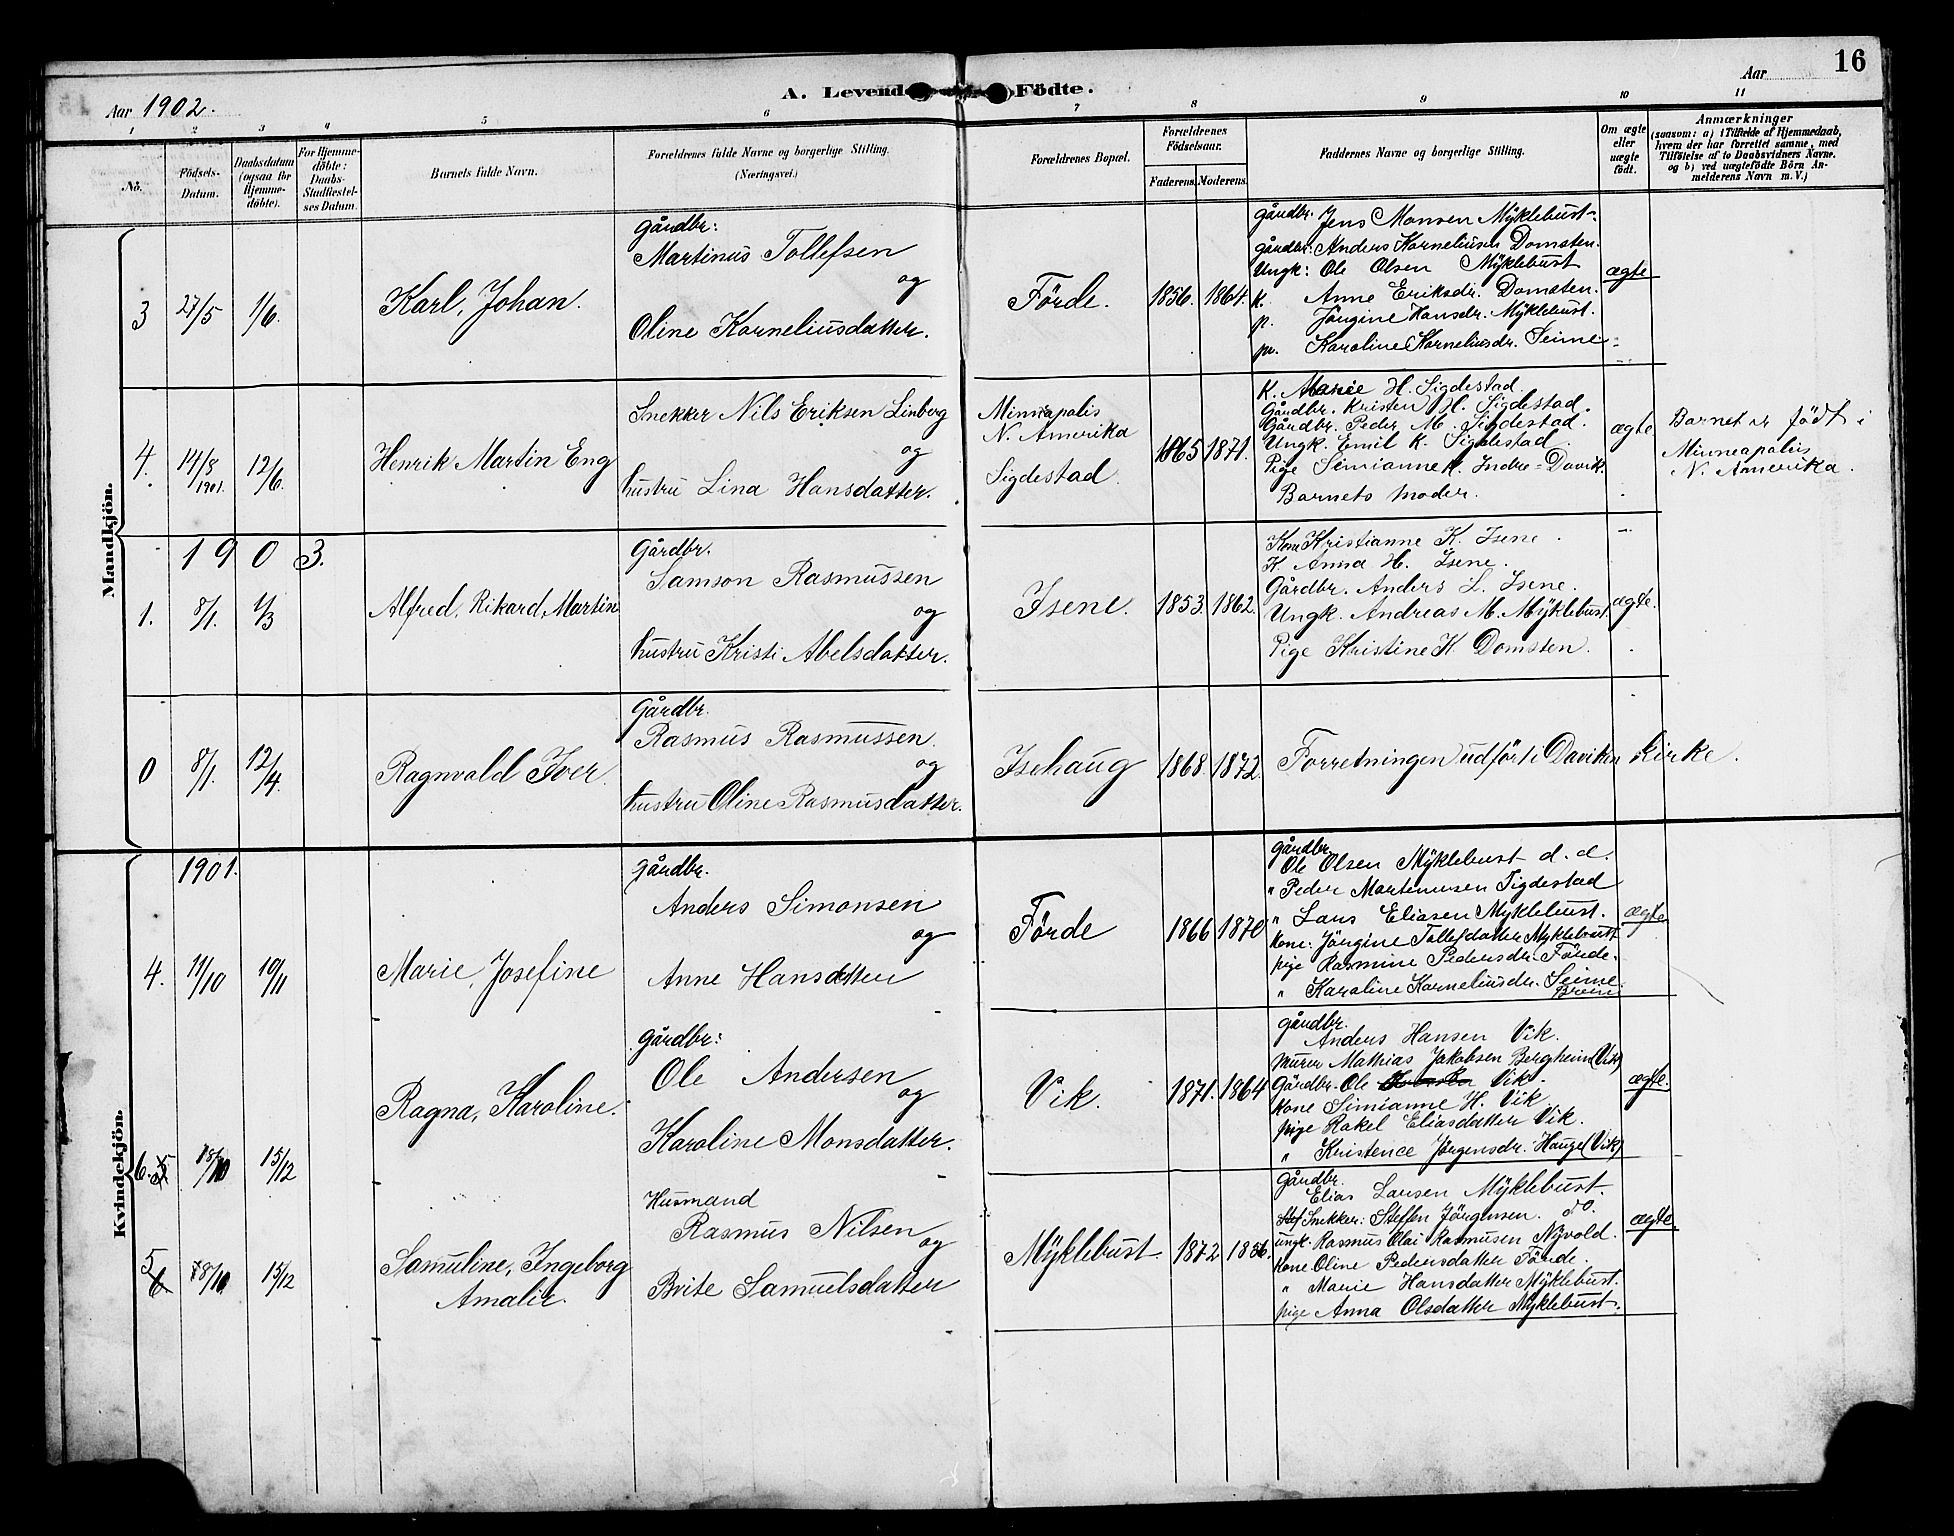 16
Aar 1902.
A. Levende Födte.
Aar
1 2 3 4 5 6 7 8 9 10 11
No.
Födsels-Datum.
Daabsdatum (ogsaa for Hjemmedöbte).
For Hjemmedöbte: Daabs-Stadfæstelses Datum.
Barnets fulde Navn.
Forældrenes fulde Navne og borgerlige Stilling.
(Næringsvei.)
Forældrenes Bopæl.
Forældrenes Födselsaar.
Faderens. Moderens.
Faddernes Navne og borgerlige Stilling.
Om ægte eller uægte födt.
Anmærkninger
(saasom: a) i Tilfælde af Hjemmedaab, hvem der har forrettet samme, med Tilföielse af to Daabsvidners Navne, og b) ved uægtefödte Börn Anmelderens Navn m. V.)
Mandkjön.
3
27/5
1/6.
Karl, Johan.
gårdbr:
Martinus Tollefsen
og
Oline Korneliusdatter.
Förde.
1856. 1864.
gårdbr. Jens Monsen Myklebust.
gårdbr: Anders Korneliusen Domsten.
Ungk: Ole Olsen Myklebust
k. Anne Eriksdr. Domsten.
p. Jörgine Hansdr. Myklebust.
p. Karoline Korneliusdr. Seime
ægte
4.
14/8 1901.
12/6.
Henrik Martin Eng
Snekker Nils Eriksen Linberg
og
hustru Lina Hansdatter.
Minneapolis
N. Amerika
Sigdestad
1865 1871.
K. Marie H. Sigdestad.
Gårdbr. Kristen H. Sigdestad.
Gårdbr. Peder M. Sigdestad.
Ungk. Emil K. Sigdestad.
Pige Simianne K. Indre-Davik.
Barnets moder.
ægte
Barnet er födt i
Minneapolis
N. Amerika.
1903.
1.
8/1.
1/3
Alfred, Rikard, Martin
Gårdbr.
Samson Rasmussen
og
hustru Kristi Abelsdatter.
Isene.
1853. 1862.
Kone Kristianne K. Isene.
K. Anna H. Isene.
Gårdbr. Anders L. Isene.
Ungk. Andreas M. Myklebust.
Pige Kristine K Domsten.
ægte.
0
8/1.
12/4.
Ragnvald Iver.
Gårdbr.
Rasmus Rasmussen.
og
hustru Oline Rasmusdatter.
Isehaug
1868. 1872.
Forretningen udfört i Daviken kirke.
Kvindekjön.
1901.
4.
11/10
10/11
Marie, Josefine
gårdbr.
Anders Simonsen
og
Anne Hansdatter
Förde
1866 1870
gårdbr.
Ole Olsen Myklebust d. d.
" Peder Martinusen Sigdestad
" Lars Eliasen Myklebust.
kone: Jörgine Tollefsdatter Myklebust
pige Rasmine Pedersdr. Förde.
" Karoline Korneliusdr. Seime
Breim
ægte
6. 5
18/10
15/12
Ragna, Karoline.
gårdbr:
Ole Andersen
og
Karoline Monsdatter.
Vik.
1871. 1864
gårdbr.
Anders Hansen Vik.
murer Mathias Jakobsen Bergheim (Vik)
Gårdbr. Ole Vik.
Kone Simianne H. Vik
pige Rakel Eliasdatter Vik.
" Kristence Jörgensdr. Hauge (Vik)
ægte.
5
6
18/10
15/12
Samuline, Ingeborg
Amalie.
Husmand
Rasmus Nilsen
og
Brite Samuelsdatter
Myklebust
1872 1856.
Gårdbr.
Elias Larsen Myklebust.
Snekker: Steffen Jörgensen. do.
ungk. Rasmus Olai Rasmusen Nyvold.
kone Oline Pedersdatter Förde.
" Marie Hansdatter Myklebust.
pige Anna Olsdatter Myklebust.
ægte